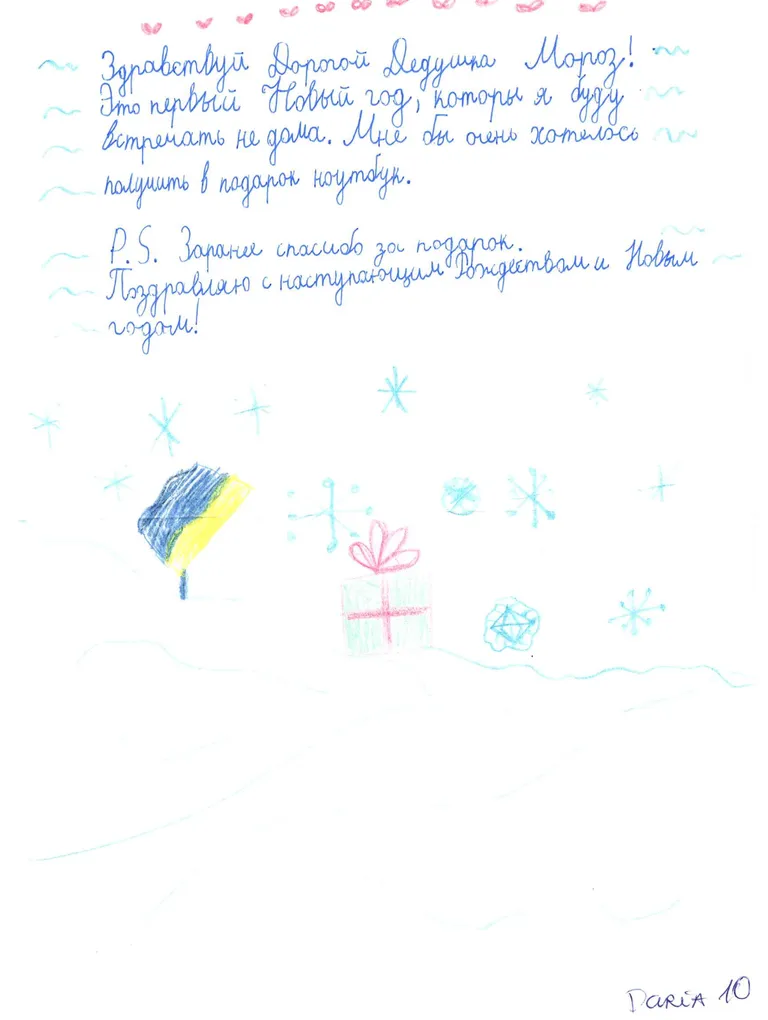 Здравствуй Дорогой Дедушка Мороз!
Это первый Новый год, которы я буду
встречать не дома. Мне бы очень хотелось
получить в подарок ноутбук.
P.S. Заранее спасибо за подарок.
Поздравляю с наступающим Рождеством и Новым
годом!
Daria 10